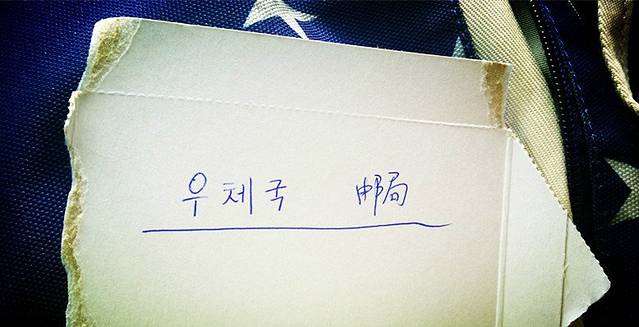 우체국 邮局